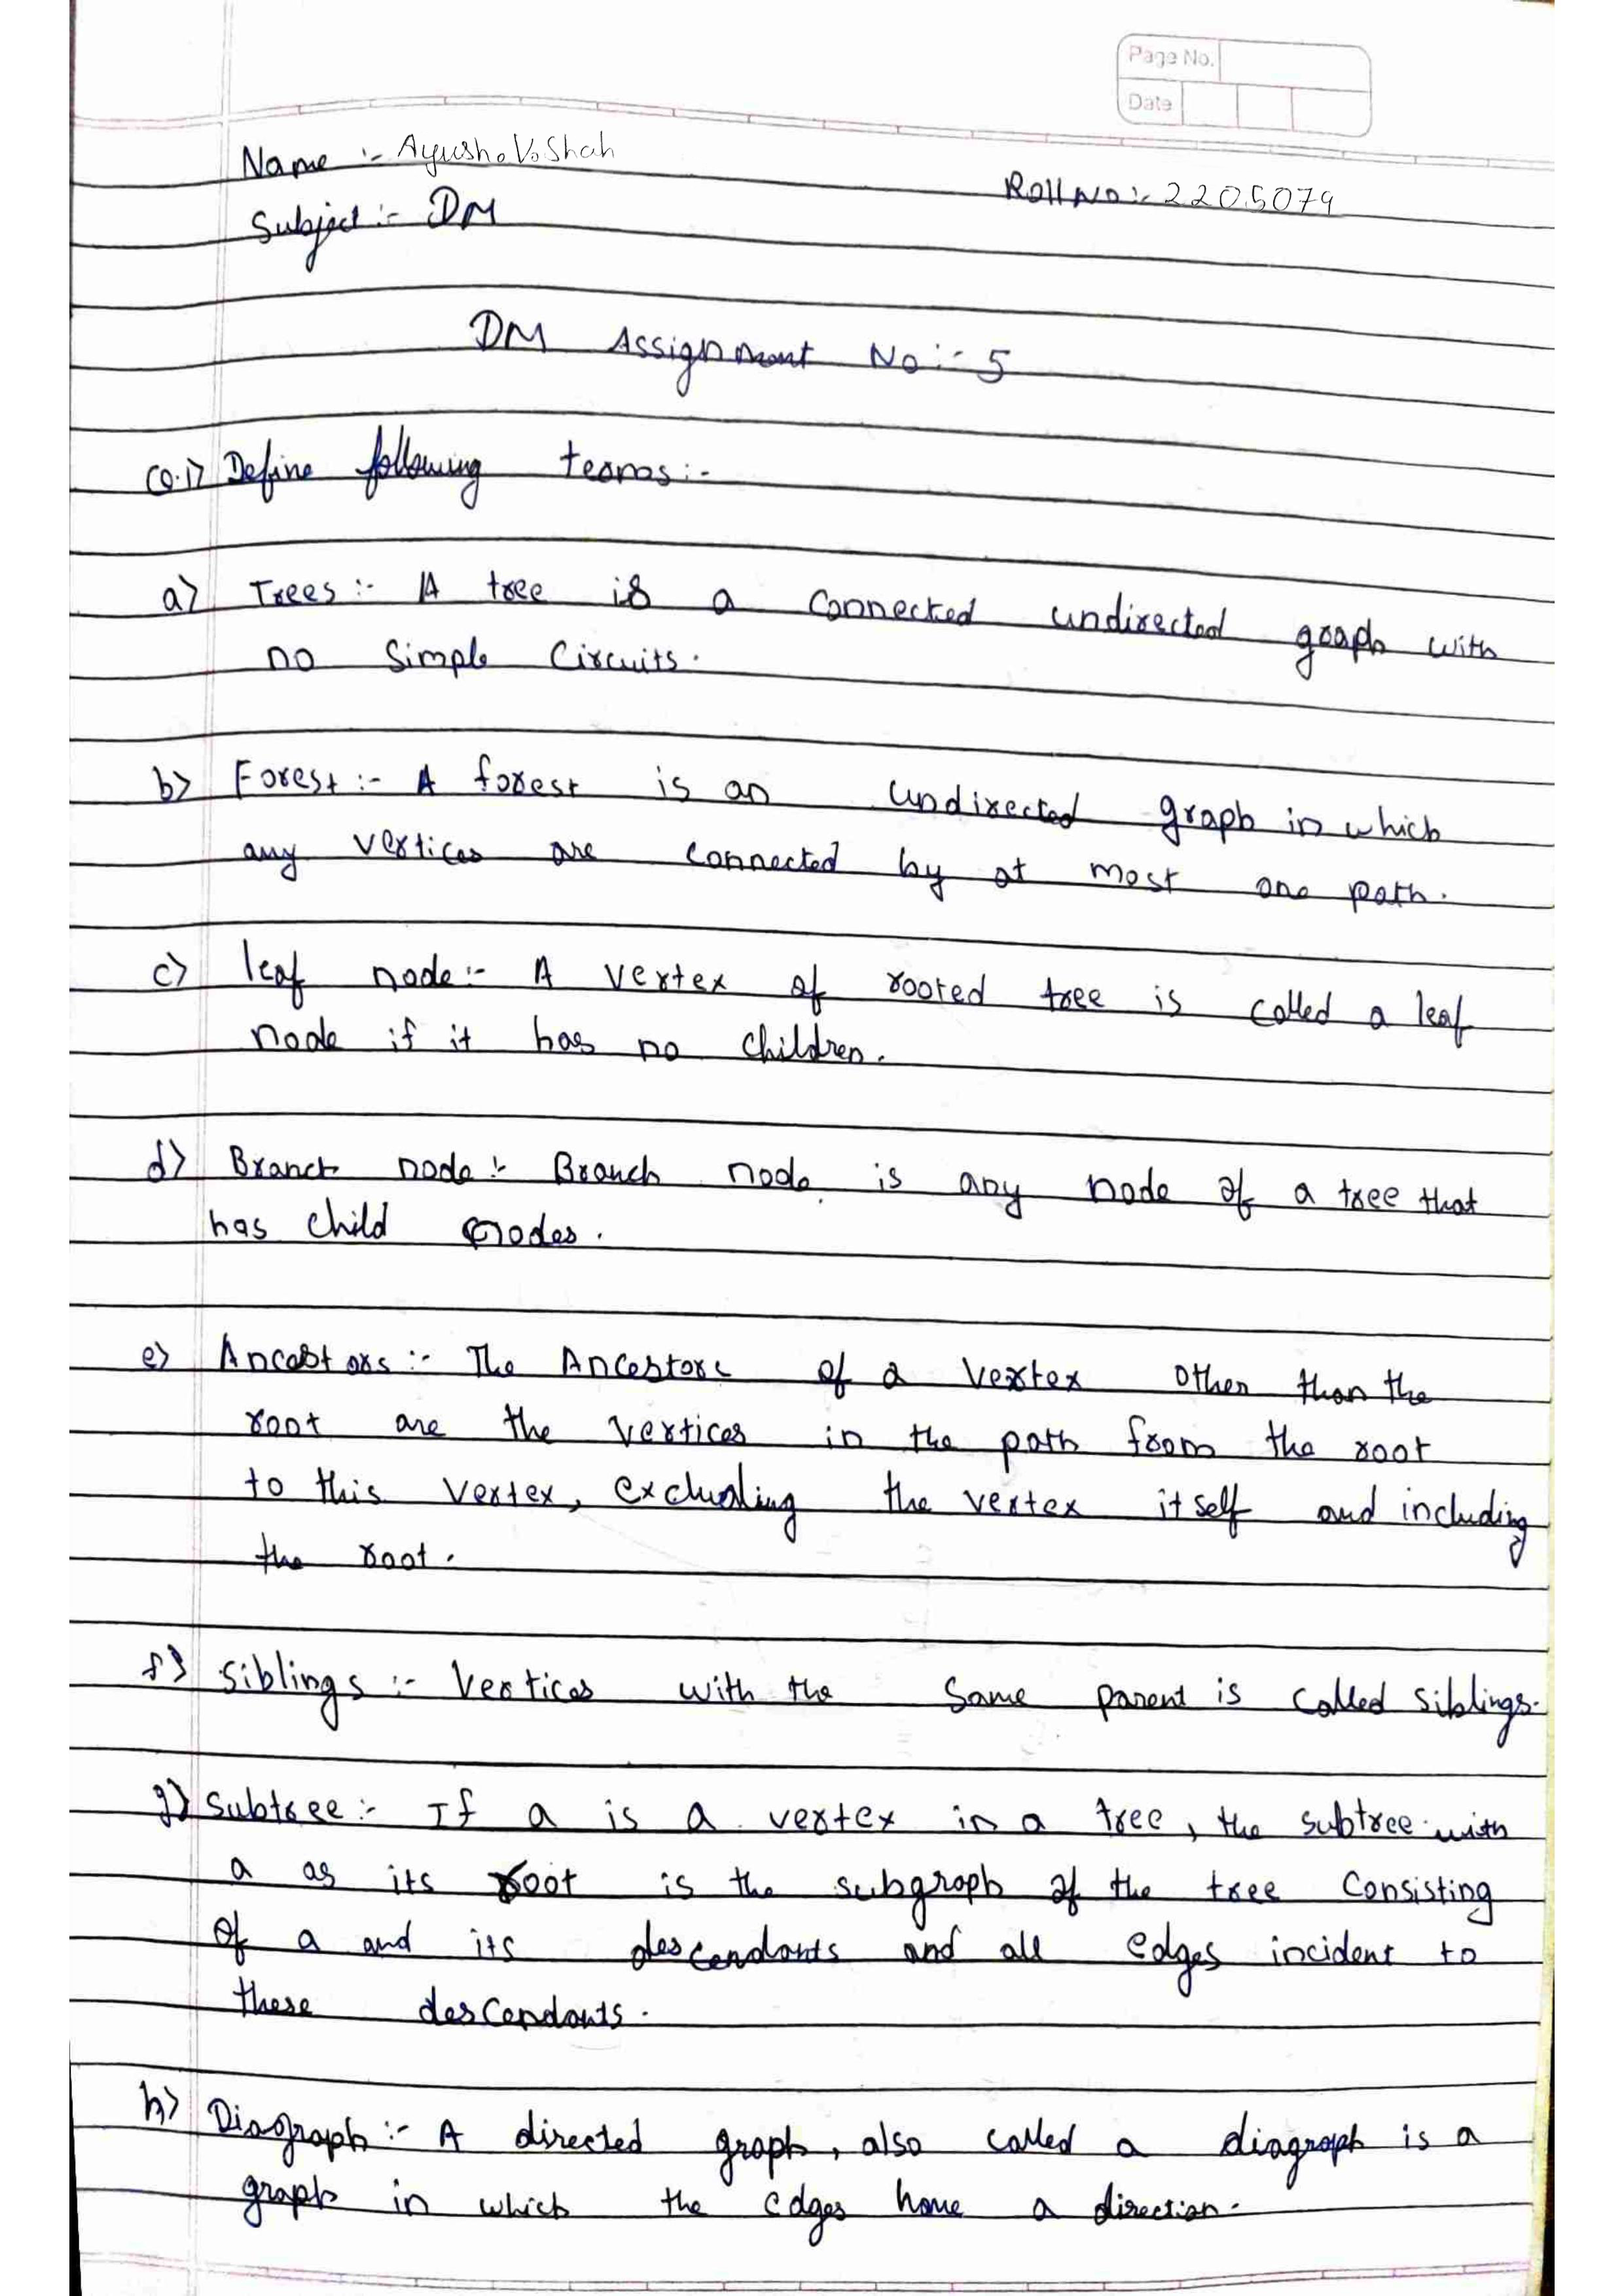 Page No.
Date
Name :- Ayush. V. Shah
Roll No :- 2205079
Subject :- DM
DM Assignment No :- 5
Q.1) Define following terms :-
a) Trees :- A tree is a connected undirected graph with
no simple circuits.
b) Forest :- A forest is an undirected graph in which
any vertices are connected by at most one path.
c) leaf node :- A vertex of rooted tree is called a leaf
node if it has no children.
d) Branch node :- Branch node is any node of a tree that
has child nodes.
e) Ancestors :- The Ancestors of a vertex other than the
root are the vertices in the path from the root
to this vertex, excluding the vertex itself and including
the root.
f) Siblings :- Vertices with the same parent is called siblings.
g) Subtree :- If a is a vertex in a tree, the subtree with
a as its root is the subgraph of the tree consisting
of a and its descendants and all edges incident to
these descendants.
h) Diagraph :- A directed graph, also called a diagraph is a
graph in which the edges have a direction.